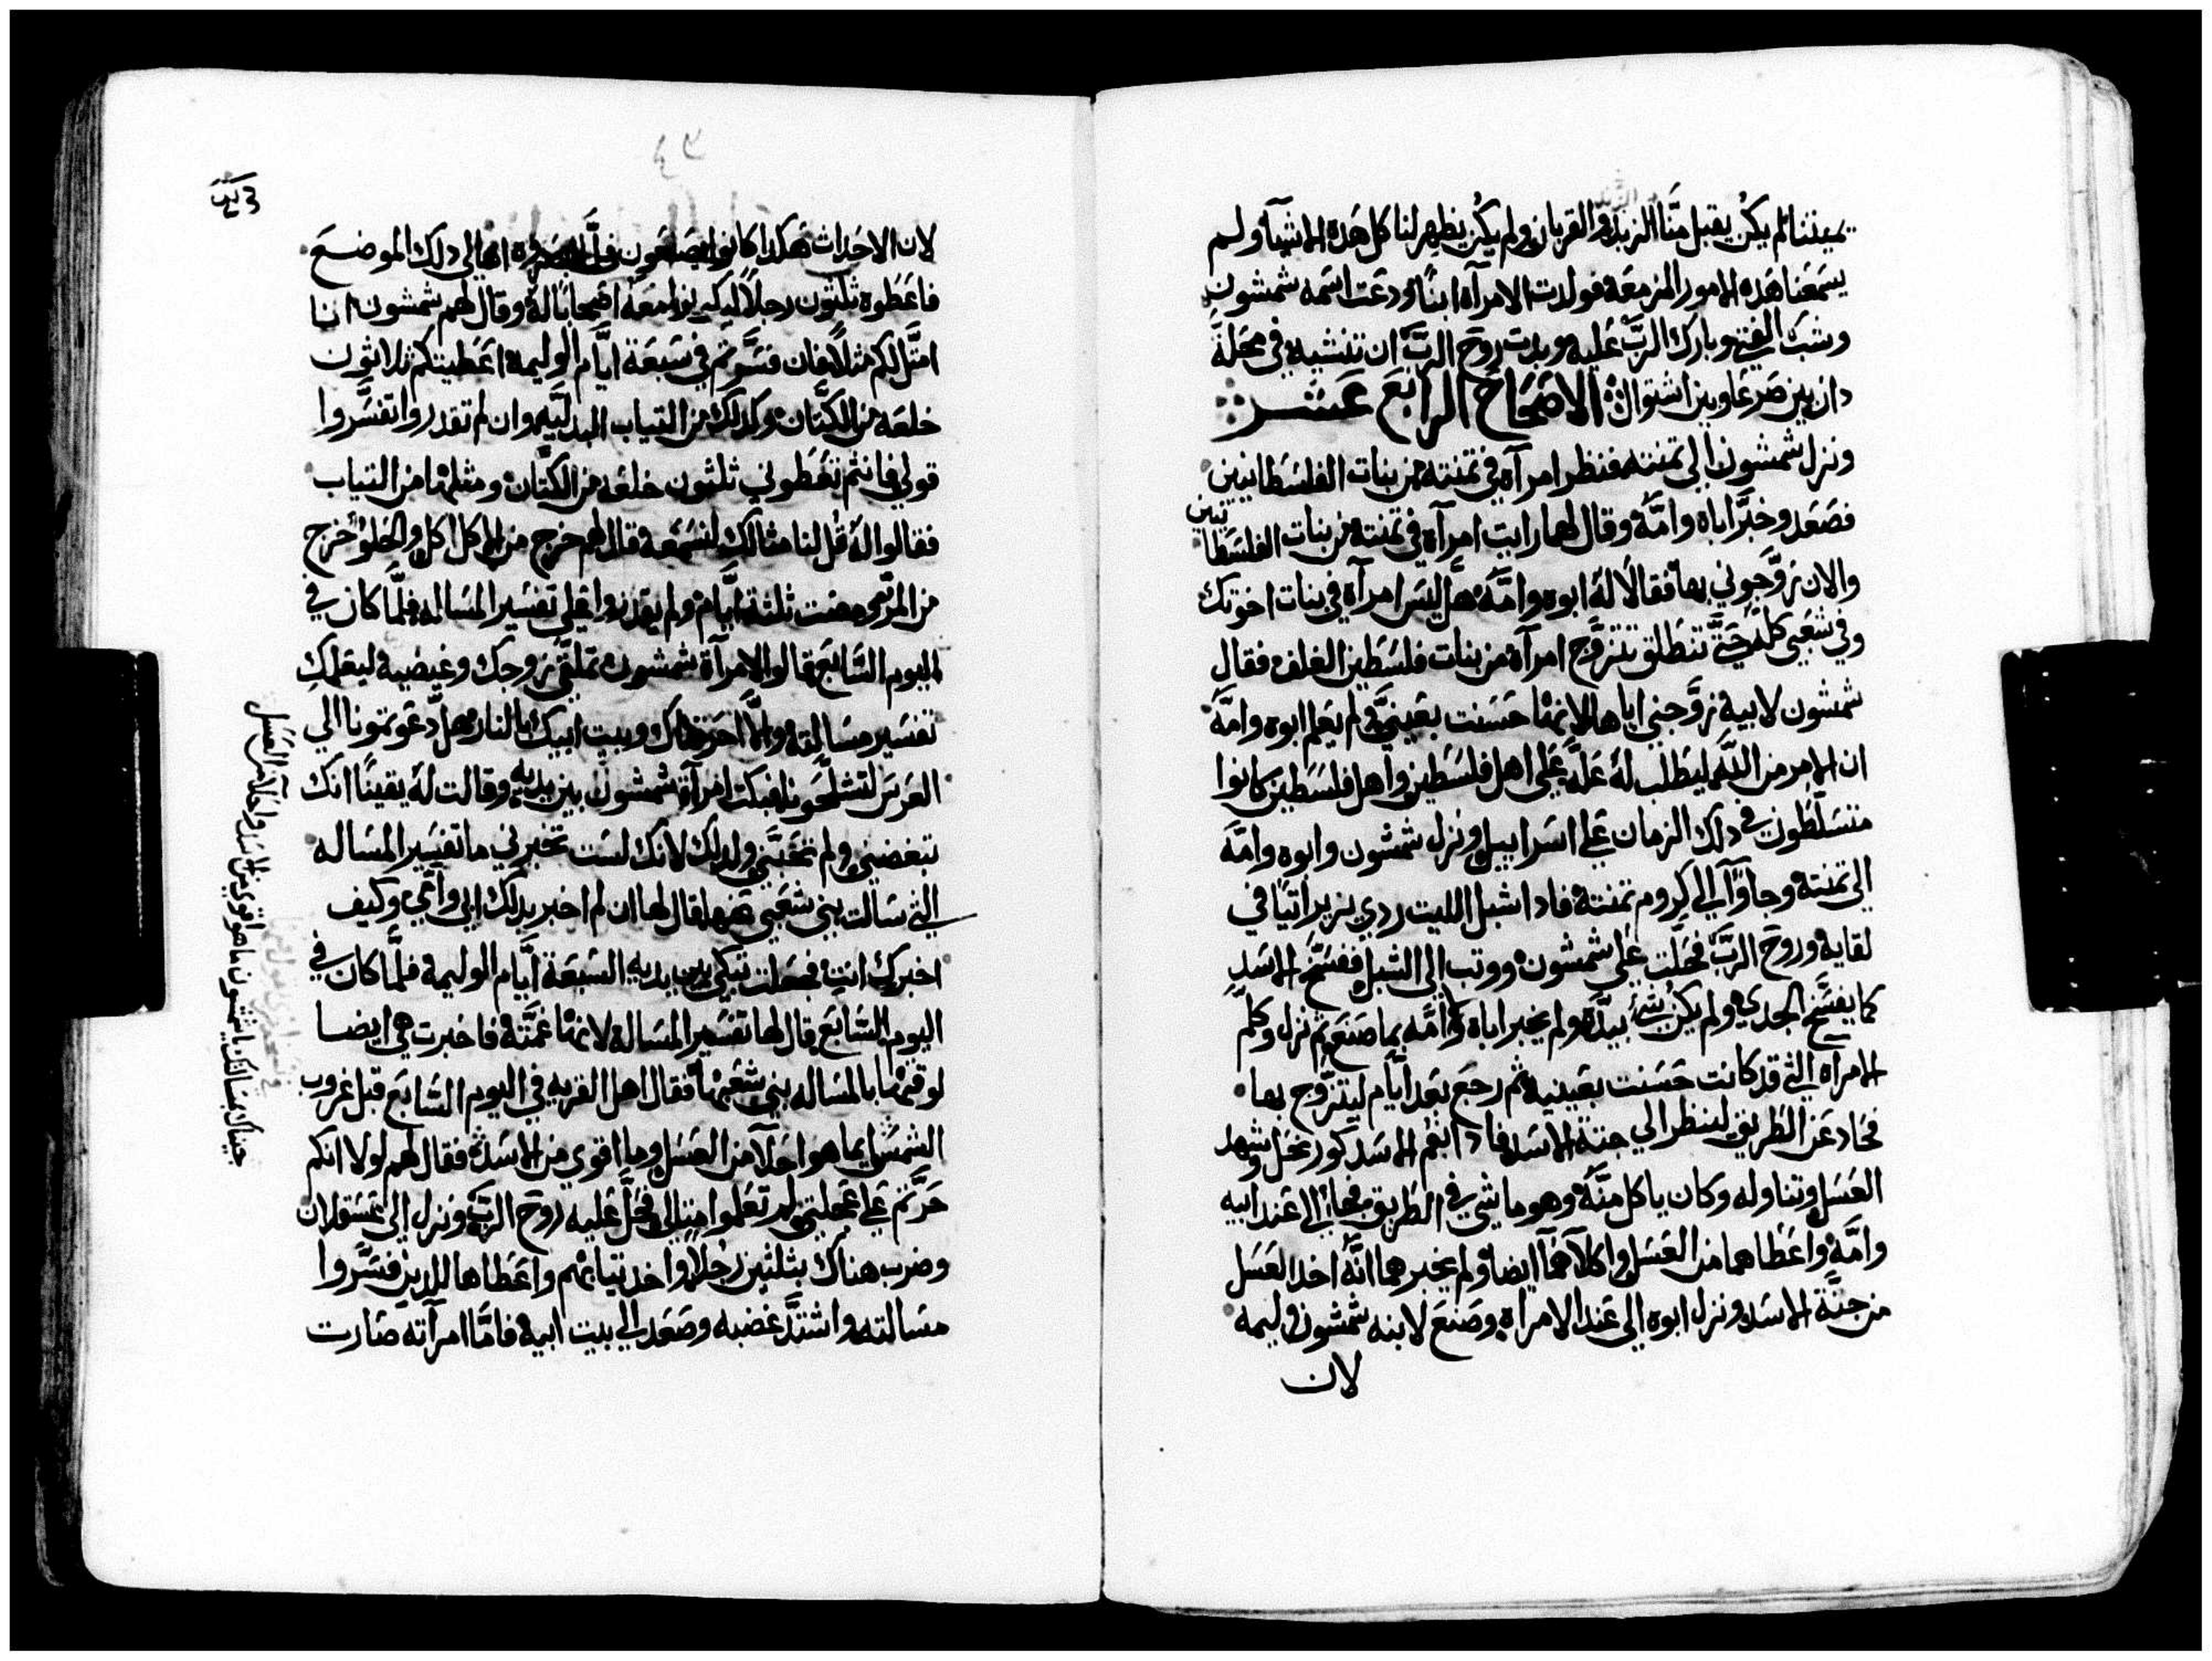 يميتنا لم يكن يقبل منّا الزبد والقربان ولم يكن يظهر لنا كل هده الاشيآ ولم
يسمعنا هده الامور المزمعه فولدت الامرآه ابناً ودعت اسمه شمشون
وشب الفتي وبارك الرب عليه وبدت روح الرب ان تنشيه في محلة
دان بين صرعا وبين اشتوال الاصحاح الرابع عشر
ونزل شمشون الي تمنته فنظر امرآه في تمنته من بنات الفلسطانيين
فصعد وخبّر اباه وامّه وقال لهما رايت امرآه في تمنته من بنات الفلسطا
نيين
والان زوّجوني بها فقالا له ابوه وامّه هل ليس امرآه في بنات اخوتك
وفي شعبي كلّه حتّي تنطلق تتزوّج امرآه من بنات فلسطين الغلف فقال
شمشون لابيه زوّجني اياها لانها حسنت بعينيّ ولم يعلم ابوه وامّه
ان الامر من اللّه ليطلب له علّه علي اهل فلسطين واهل فلسطين كانوا
متسلّطون في دلك الزمان علي اسراييل ونزل شمشون وابوه وامّه
الي تمنته وجاوآ الي كروم تمنته فادا شبل الليت ردي يزير اتيًا في
لقايه وروح الربّ فحلّت علي شمشون ووتب الي الشبل ففسّخ الاسد
كما يفسّخ الجدي ولم يكن شي بيدّه ولم يخبر اباه وامّه بما صنع ثم نزل وكلّم
الامراه التي قد كانت حسنت بعينيه ثم رجع بعد ايّام ليتزوّج بها
فحاد عن الطريق لينظر الي جتة الاسد فادا بفم الاسد كور نحل وشهد
العسل وتناوله وكان ياكل منّه وهو ماشي في الطريق فجا الي عند ابيه
وامّه واعطاهما من العسل واكلا هما ايضا ولم يخبرهما انّه اخد العسل
من جتّة الاسد ونزل ابوه الي عند الامراه وصنع لابنه شمشون وليمه
لان
لان الاحدات هكدا كانوا يصنعون اهالي دلك الموضع
فاعطوه ثلثون رجلاً ليكونوا معه اصحابًا له وقال لهم شمشون انا
امتّل لكم مثلاً فان فسّرتم في سبعة ايّام الوليمه اعطيتكم ثلاثون
خلعه من الكتّان وكدلك من التياب المبدليّه وان لم تقدروا تفسّروا
قولي فانتم تعطوني ثلثون خلعه من الكتّان ومثلها من التياب
فقالوا له قل لنا مثالك لنسمعه قال لهم خرج من الاكل اكل والحلو خرج
من المرّ فمضت ثلثة ايّام ولم يقدروا علي تفسير المساله فلمّا كان في
اليوم السّابع قالوا لامرآة شمشون تملّقي زوجك وغيضيه ليعلمكِ
تفسير مسالته والاّ احرقناك وبيت ابيك بالنار هل دعوتمونا الي
العرس لتشلّحونا فبكت امرآة شمشون بين يديه وقالت له يقينًا انك
تبغضني ولم تحبّني ولدلك لانك لست تخبرني ما تفسير المساله
التي سالت بني شعبي عنها فقال لها ان لم اخبر بدلك ابي وامّي وكيف
اخبرك انتِ فجعلت تبكي بين يديه السبعة ايّام الوليمه فلمّا كان في
اليوم السّابع قال لها تفسير المساله لانها غمّته فاخبرت هي ايضا
لوقتها بالمساله بني شعبها فقال اهل القريه في اليوم السّابع قبل غروب
الشمس ايما هو احلآ من العسل وما اقوي من الاسد فقال لهم لولا انكم
حرّتم علي عجلتي لم تعلموا متالي فحلّ عليه روح الربّ ونزل الي عسقلان
وضرب هناك بثلثين رجلاً واخد تيابهم واعطاها للدين فسّروا
مسالته واشتدّ غضبه وصعد الي بيت ابيه فامّا امرآته صارت